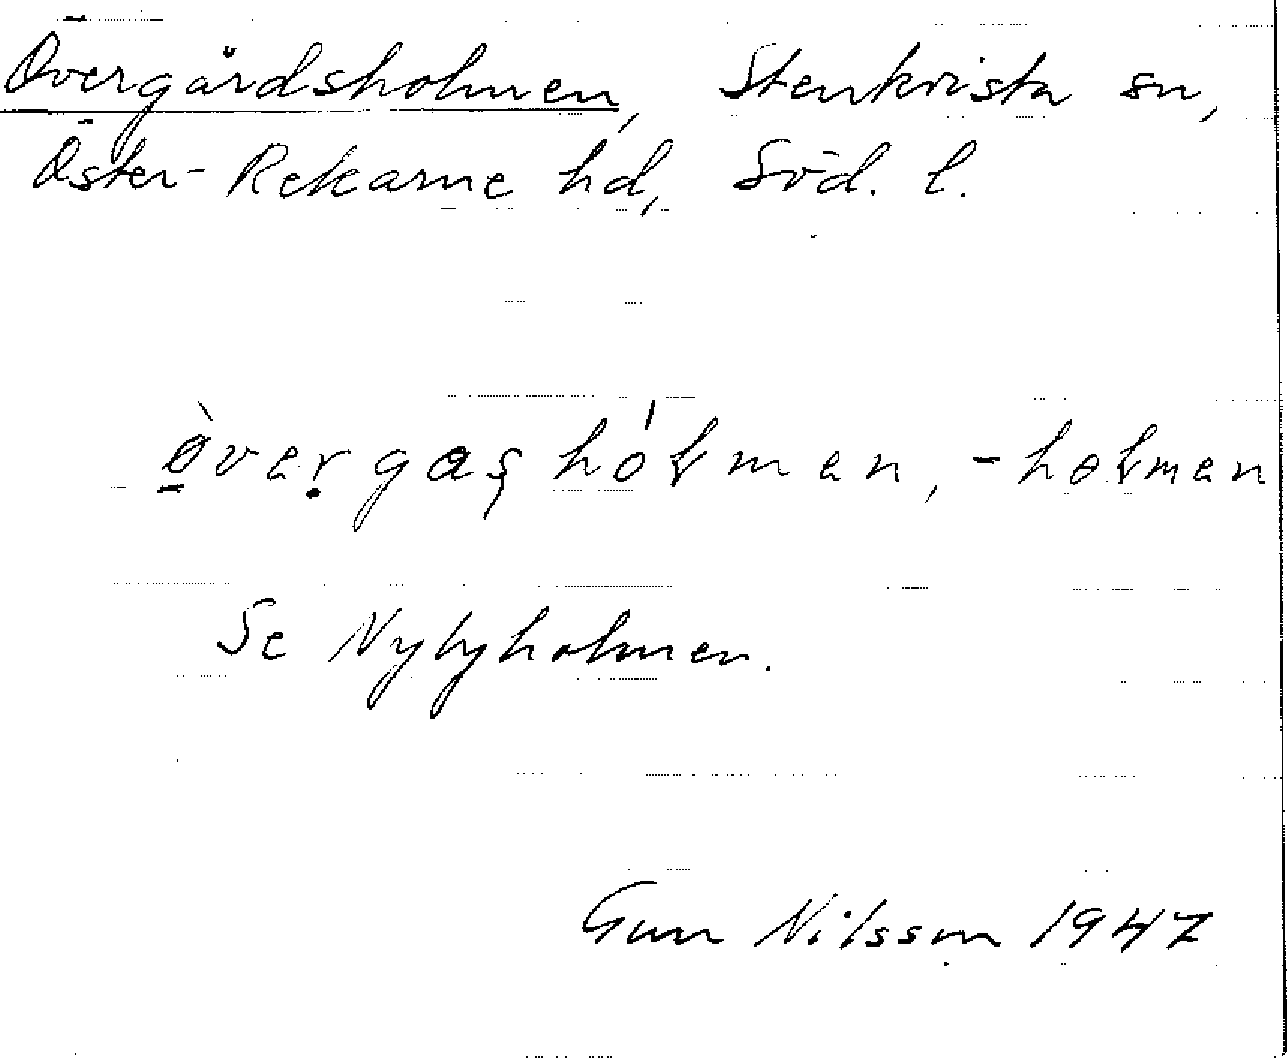 Övergårdsholmen, Stenkvista sn,
Öster-Rekarne hd, Söd. l.
ö̀vеrgaşhół'men, -hołmen
Se Nybyholmen.
Gun Nilsson 1947